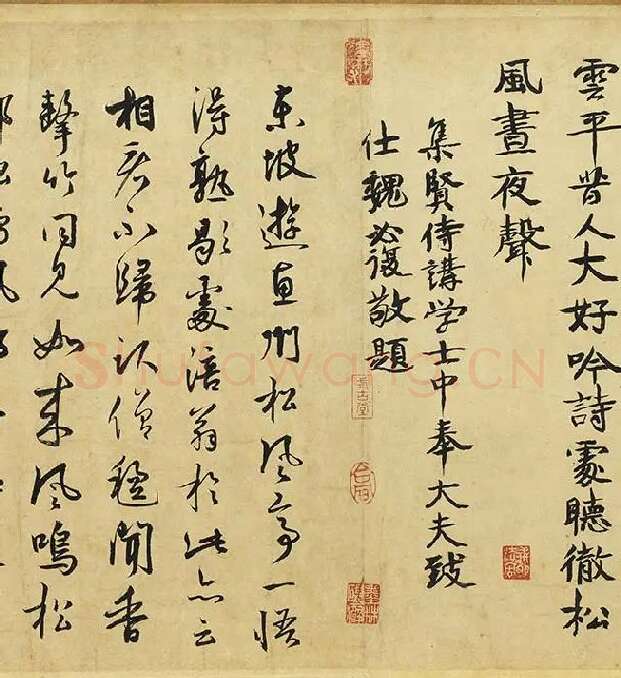 雲平昔人大好吟詩處聽徹松
風晝夜聲
集賢侍講学士中奉大夫致
仕魏必復敬題
東坡遊惠州松風亭一悟
得熟歇處涪翁於此亦云
相不歸僧聞香
擊竹同見如来風鳴松
風
Shufawang.CN